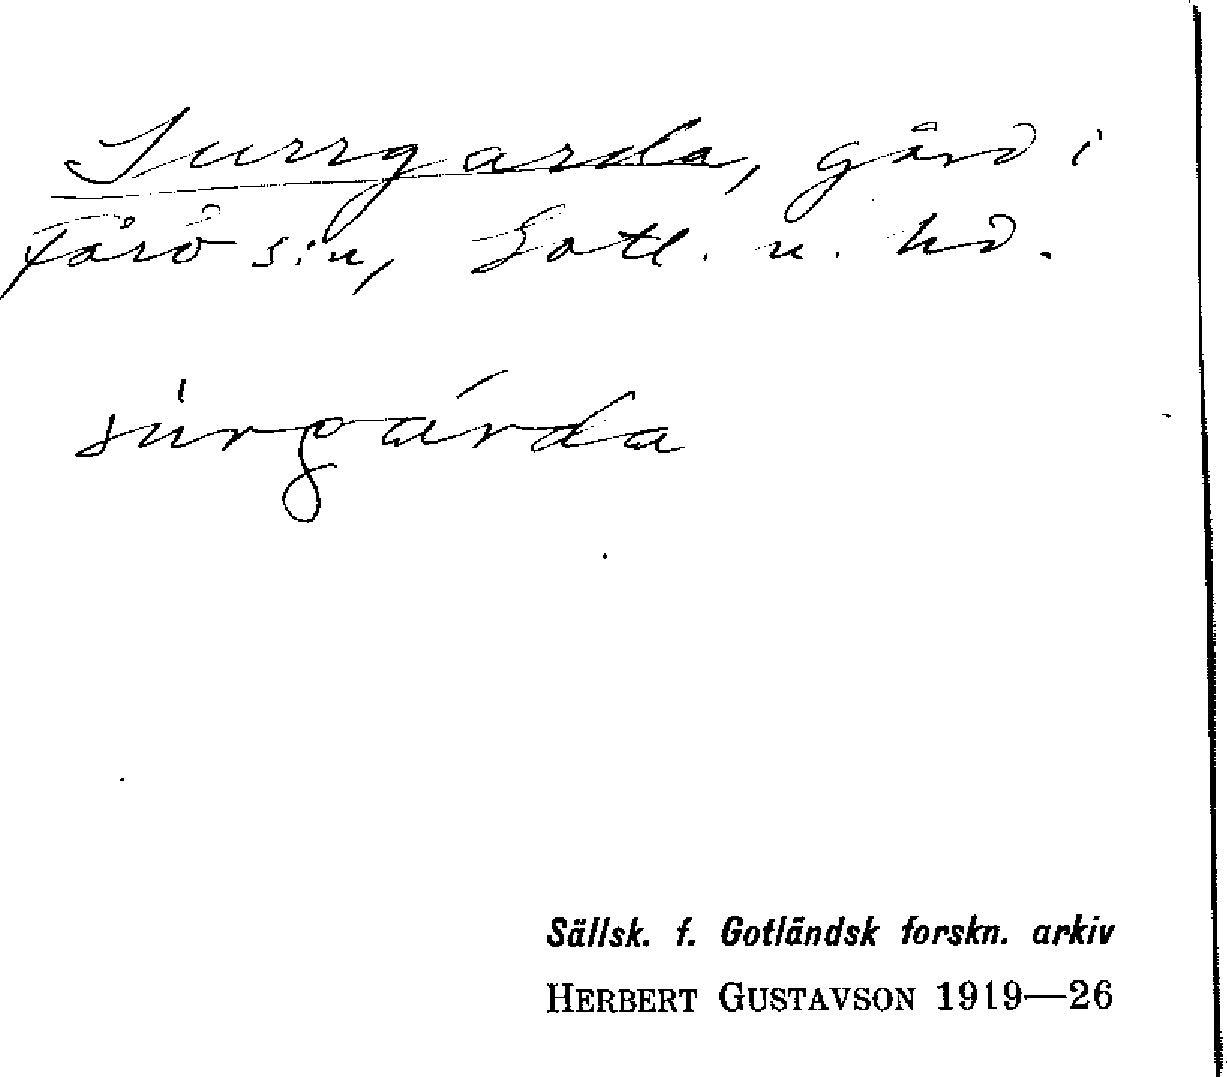 Surrgarda, gård i
Fårö s:n, Gotl. n. hd.
súrgárda
Sällsk. f. Gotländsk forskn. arkiv
HERBERT GUSTAVSON 1919—26